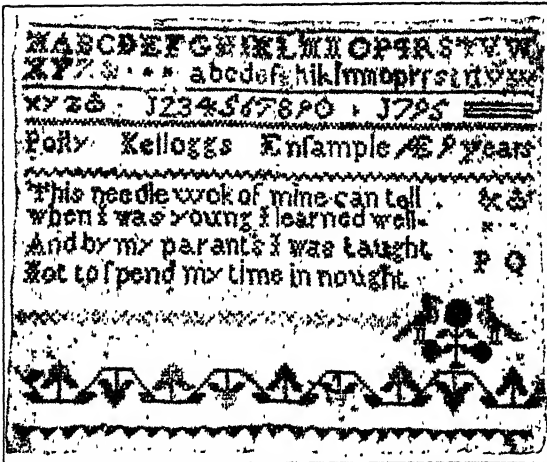 ABCDEFGHIKLMNOPQRSTVW
XYZ& abcdefghiklmnopqrsſtuvw
xyz& J234567890 J795
Polly Kelloggs Enſample Æ 9 years
This needle wok of mine can tell
when I was young I learned well
And by my parants I was taught
Not to ſpend my time in nought
P Q